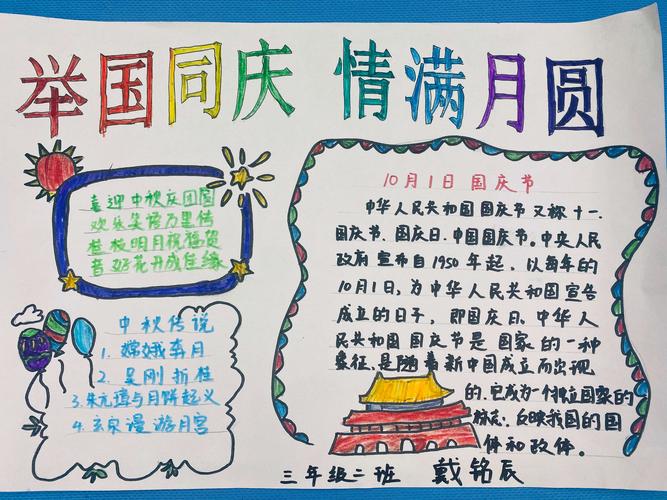 举国同庆 情满月圆
喜迎中秋庆团圆
欢乐笑语万里传
桂枝明月祝福贺
音好花开成佳缘
中秋传说
1. 嫦娥奔月
2. 吴刚折桂
3. 朱元璋与月饼起义
4. 玄宗漫游月宫
10月1日 国庆节
中华人民共和国国庆节又称十一、
国庆节、国庆日、中国国庆节。中央人民
政府宣布自1950年起,以每年的
10月1日,为中华人民共和国宣告
成立的日子,即国庆日、中华人
民共和国国庆节是国家的一种
象征,是随着新中国成立而出现
的,它成为一个独立国家的
标志,反映我国的国
体和政体。
三年级二班 戴铭辰